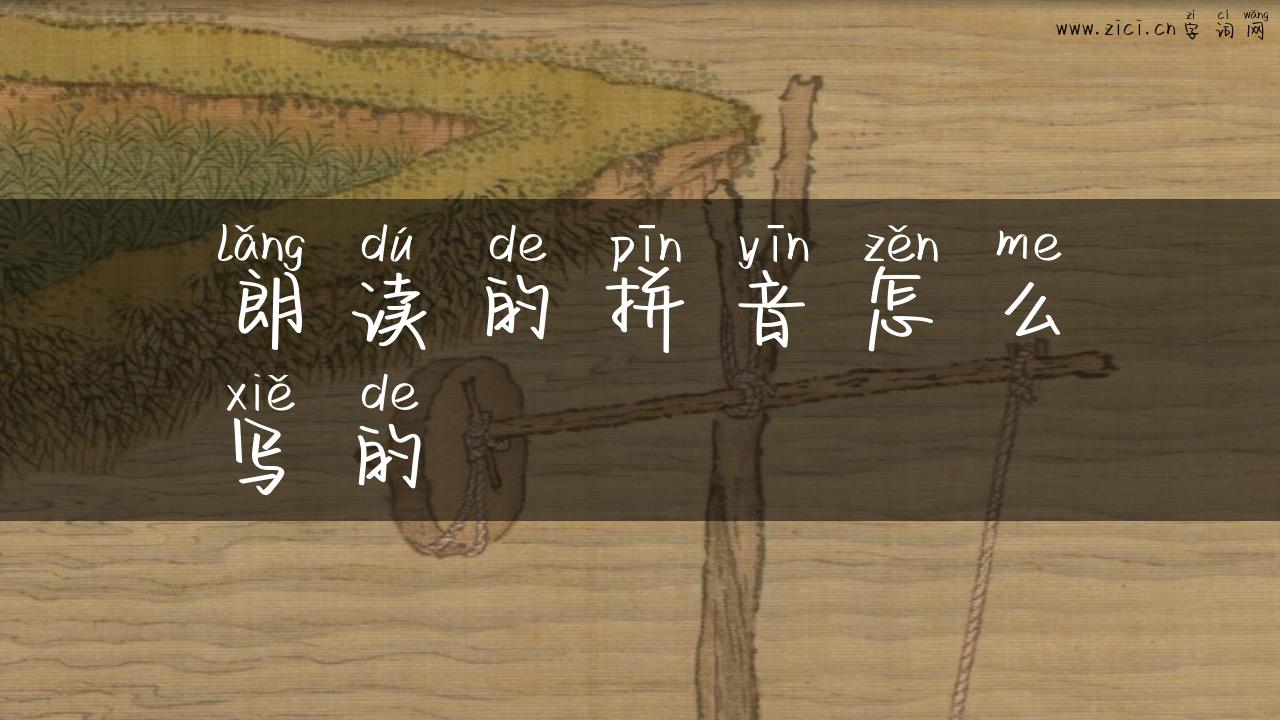 zì cí wǎng
www.zici.cn 字 词 网
lǎng dú de pīn yīn zěn me
朗 读 的 拼 音 怎 么
xiě de
写 的